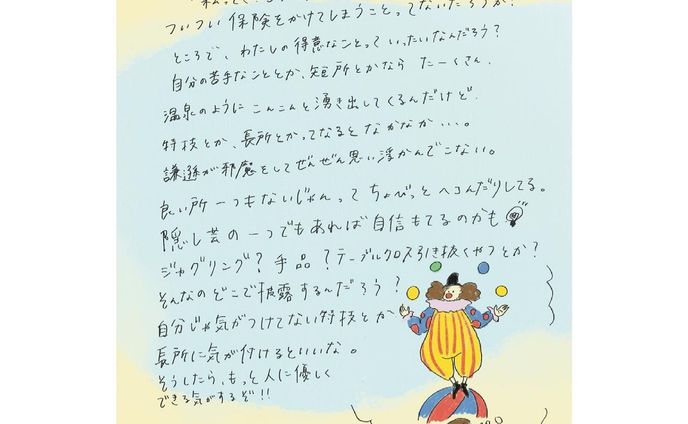 ついつい保険をかけてしまうことってないだろうか?
ところで、わたしの得意なことっていったいなんだろう?
自分の苦手なこととか、短所とかなら たーくさん、
温泉のように こんこんと湧き出してくるんだけど、
特技とか、長所とかってなると なかなか…。
謙遜が邪魔をしてぜんぜん思い浮かんでこない。
良い所一つもないじゃんって ちょびっとヘコんだりしてる。
隠し芸の一つでもあれば自信もてるのかも
ジャグリング?手品?テーブルクロス引き抜くやつとか?
そんなのどこで披露するんだろう?
自分じゃ気がつけてない特技とか
長所に気が付けるといいな。
そうしたら、もっと人に優しく
できる気がするぞ!!